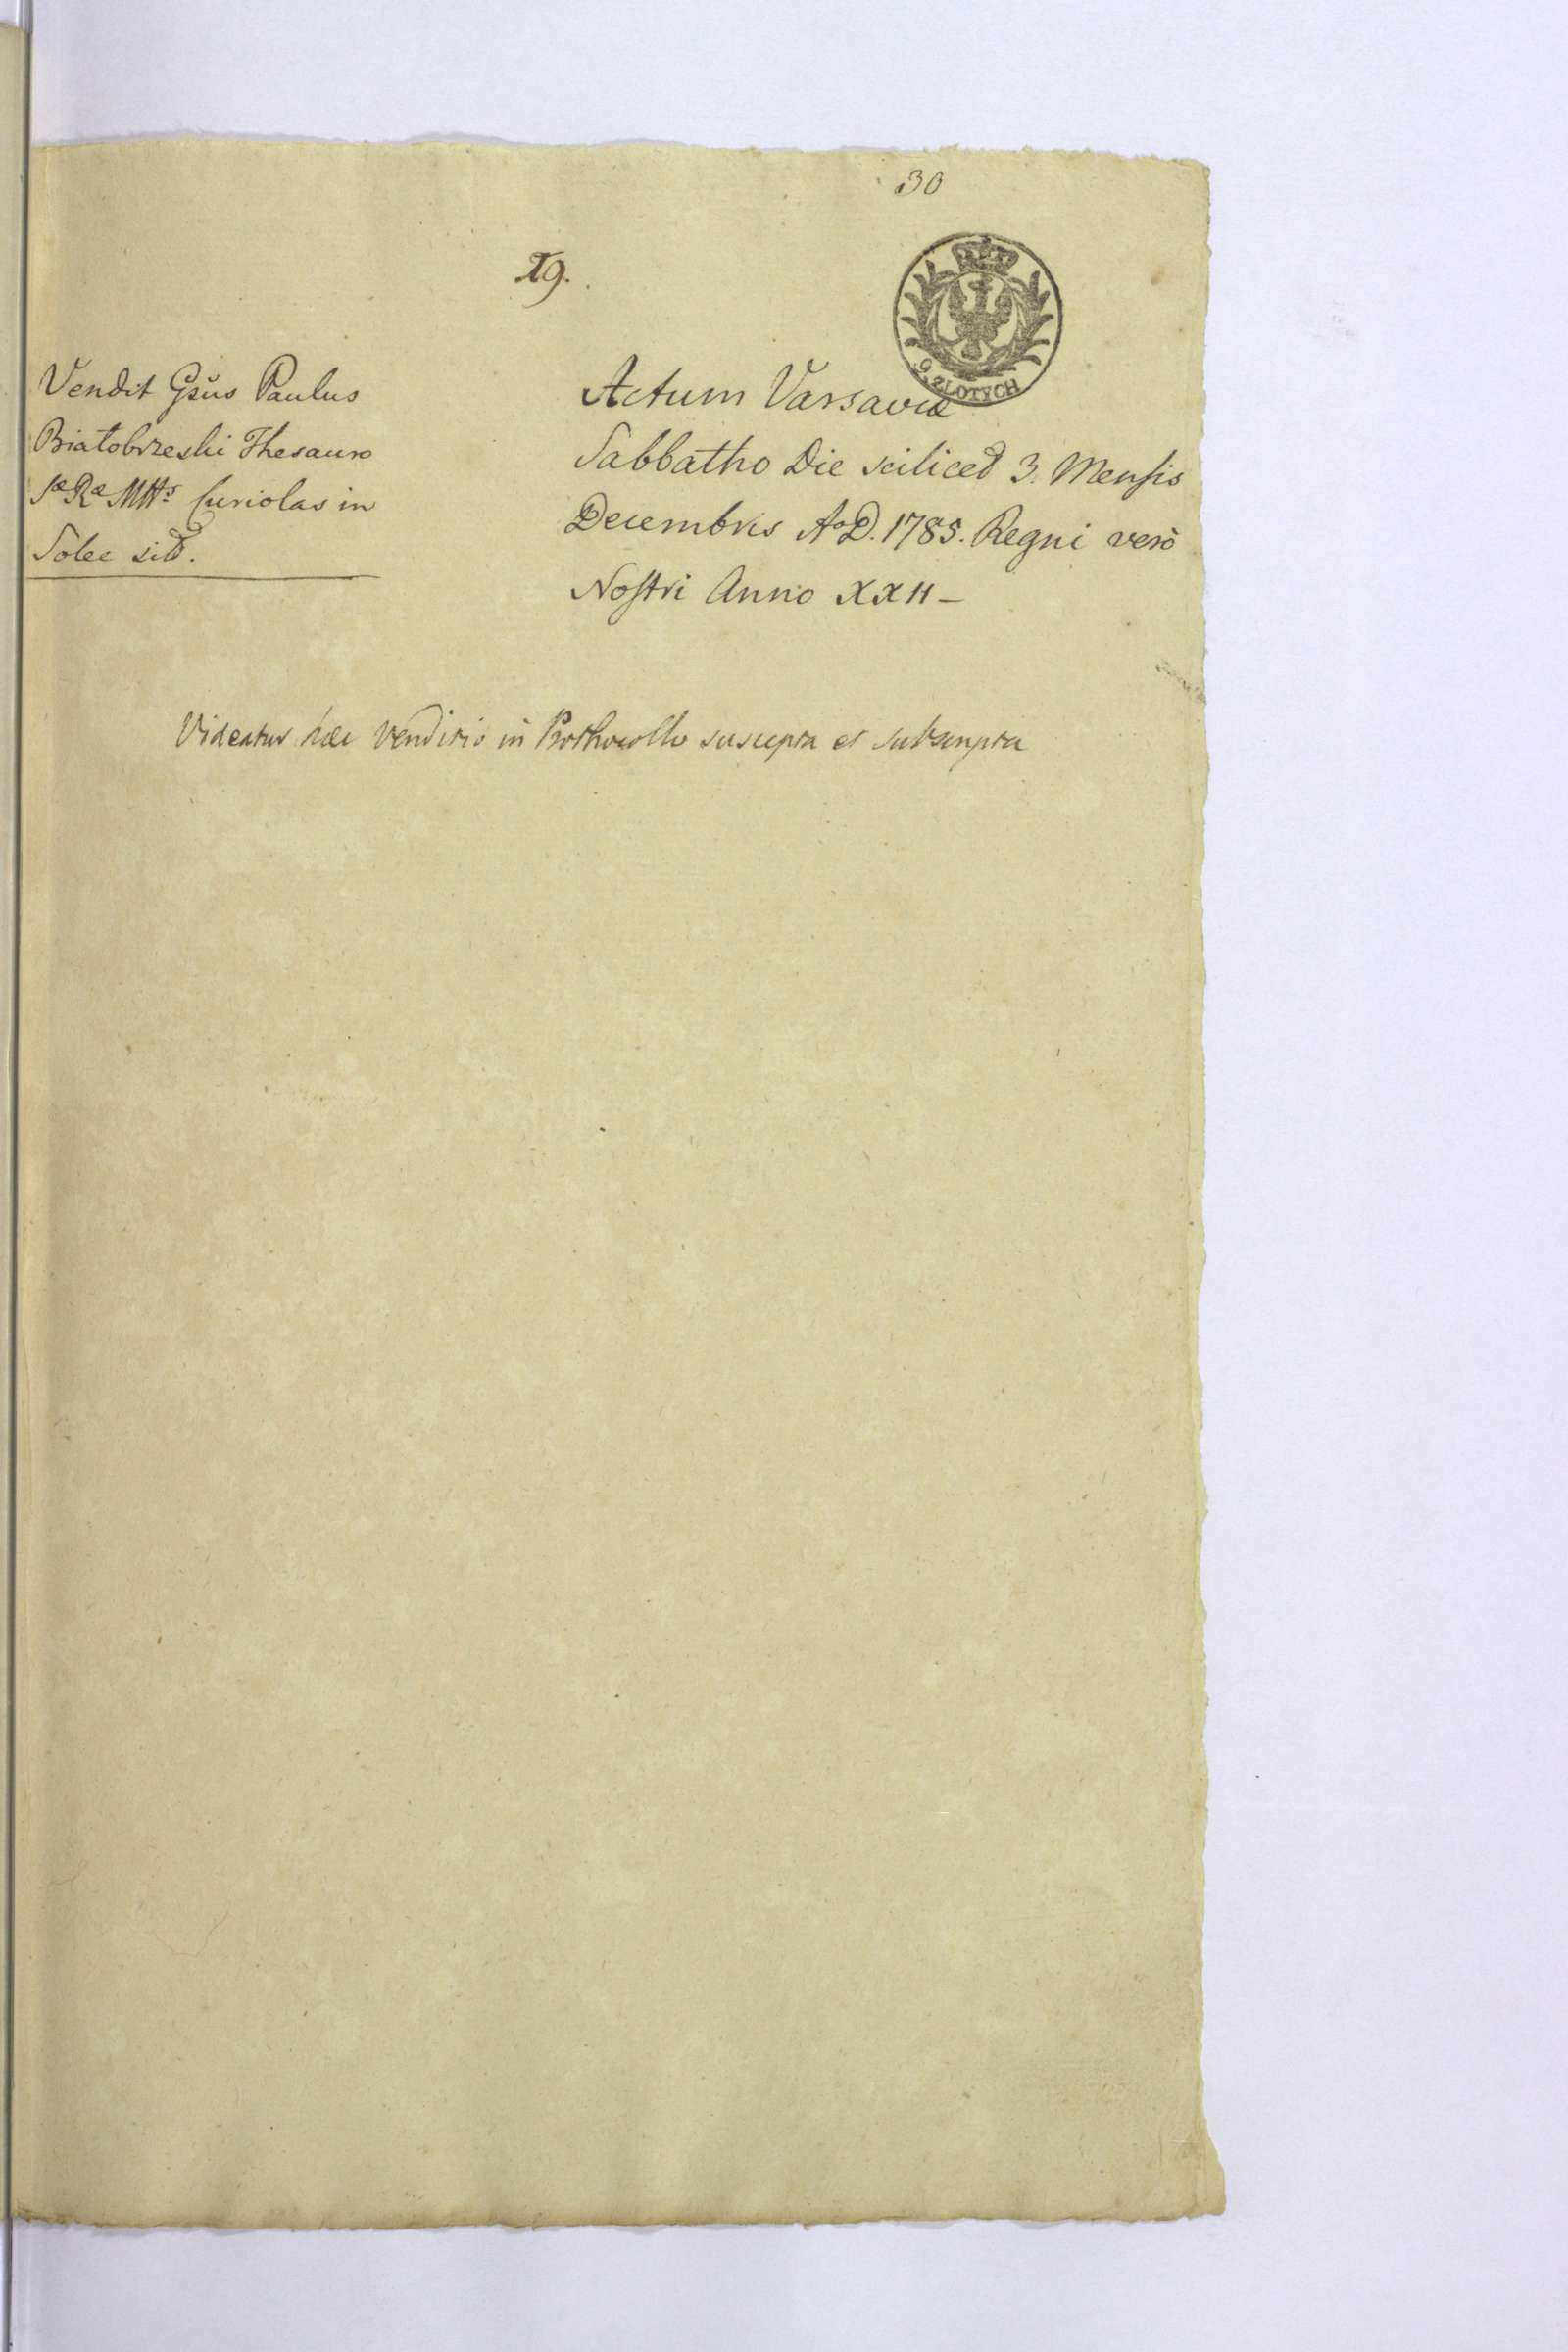 30
19.
9. ZLOTYCH
Vendit Gsŭs Paulus
Białobrzeski Thesauro
Sæ Ræ Mttis Curiolas in
Solec sitt.
Actum Varsaviæ
Sabbatho Die scilicet 3. Mensis
Decembris Ao D. 1785. Regni verò
Nostri Anno XXII –
Videatur hæc Venditio in Prothocollo suscepta et subscripta